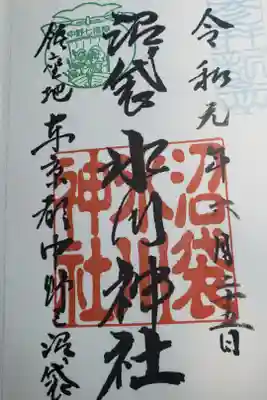 令和元年六月二十五日
沼袋氷川神社
鎮座地東京都中野区沼袋
沼袋氷川神社
中野七福神